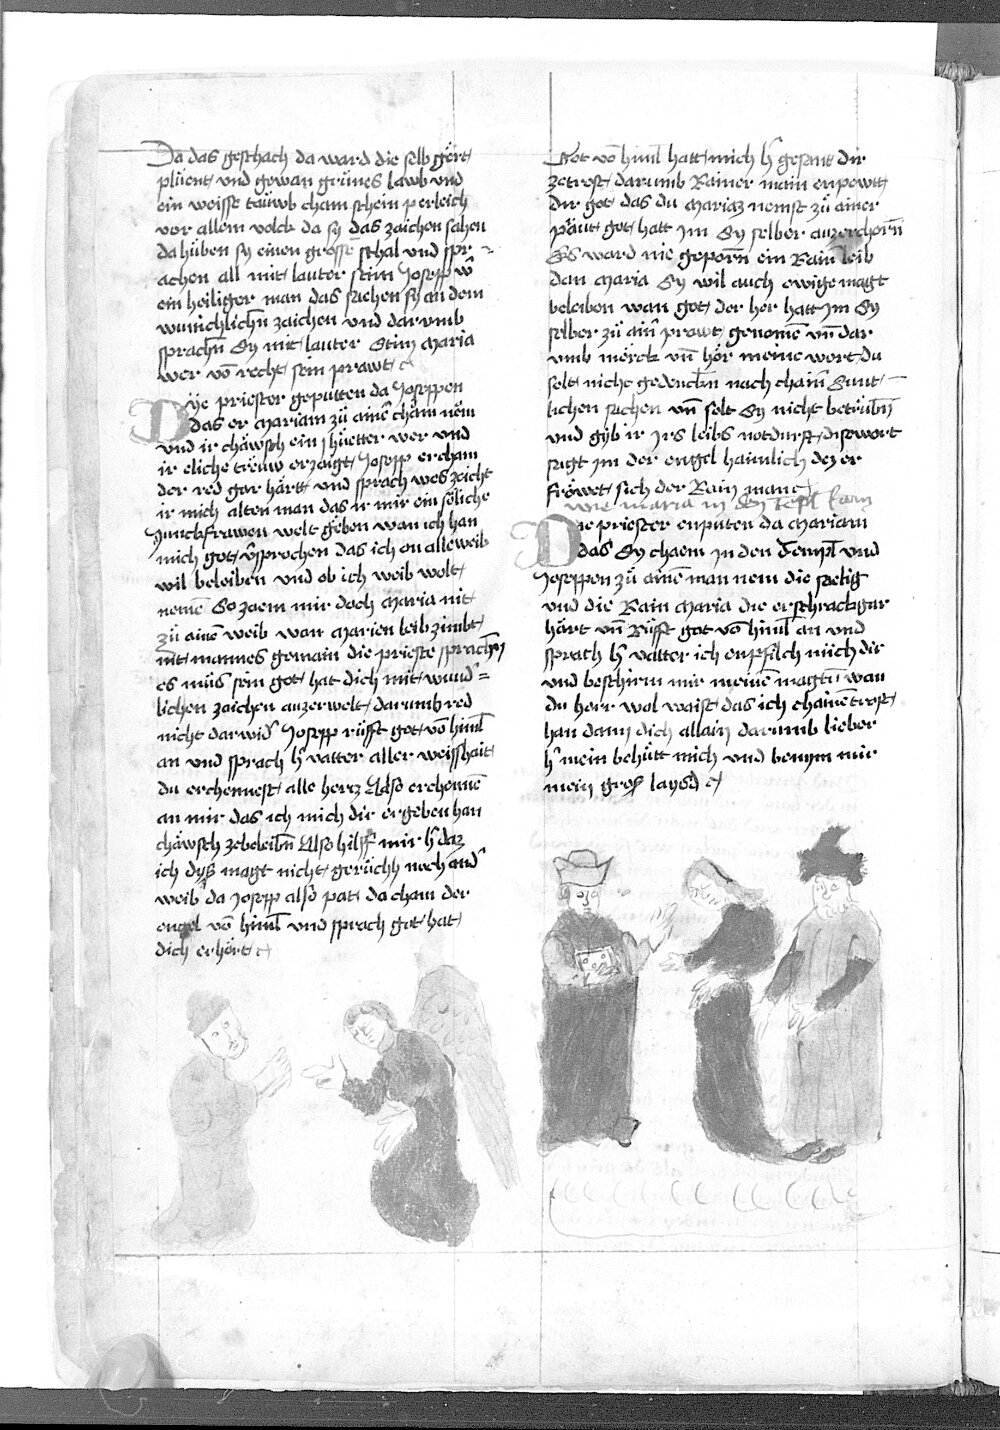 Da das geschach da ward die selb gört
plüent und gewan grünes lawb und
ein weisse tauwb cham schein perleich
vor allem volck da sy das zaichen sahen
da hüben sy einen grossē schal und spr=
achen all mit lauter stim Joseph w̄
ein heiliger man das sechen sy an dem
wunichlichn̄ zaichen und darumb
sprachn̄ Sy mit lauter Stim Maria
wer vō recht sein prawt
Dye priester geputten da Joseppen
das er Mariam zü ainē cham nem
und ir chäwsch ein hüetter wer und
ir eliche trëuw erzaigt Josepp ercham
der red gar härtt und sprach wes zeicht
ir mich alten man das ir mir ein söliche
Junckfrawen welt geben wan ich han
mich got v̄sprochen das ich on alle weib
wil beleiben und ob ich weib wolt
nemē So zaem mir doch Maria nit
zü ainē weib wan Marien leib zimbt
nit mannes gemain die prieste sprachn̄
es müs sein got hat dich mit wund=
lichen zaichen auzerwelt darumb red
nicht darwid Josepp rüfft got vō himl
an und sprach h̄ vatter aller weisshait
du erchennest alle hertz Also erchennē
an mir das ich mich dir ergeben han
chäwsch zebeleibn̄ Also hilff mir h̄ daz
ich dyser magt nicht gerüch noch and
weib da Josepp also pat da cham der
engel vō himl und sprach got hat
dich erhört
Got vō himl hatt mich h̄ gesant dir
zetrost darumb Rainer main enpewtt
dir got das du Mariaz nemst zü ainer
präut got hatt im Sy selber auzerchorn̄
Es ward nie geporn̄ ein Rain leib
dan Maria Sy wil auch ewige magt
beleiben wan got der her hatt im Sy
selber zü ain̄ prawt genomē vn̄ dar
umb mörck vn̄ hör meine wort du
solt nicht gedenckn̄ nach chain̄ Sunt
lichen sachen vn̄ solt Sy nicht betrübn̄
und gyb ir irs leibs notdurft dise wort
sagt im der engel haimlich dez er
fröwet sich der Rain man
wie maria in den Tepl kam
Die priester enputen da Mariam
das Sy chaem in den Templ und
Joseppen zü ainē man nem die saelig
und die Rain Maria die erschrack gar
härt vn̄ Rüfft got vō himl an und
sprach h̄ vatter ich enpfilch mich dir
und beschirm mir meinē magtū wan
du herr wol waist das ich chainē trost
han dann dich allain darumb lieber
h̄ mein behütt mich und benym mir
mein gros layd